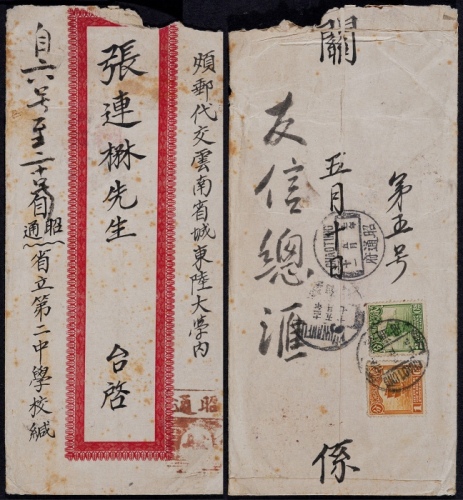 煩郵代交雲南省城東陸大學內
張連楙先生 台啓
自六号至二十号省
昭通省立第二中學校緘
昭通
關
第五号
五月十日
友信總滙
係
昭通府
CHAOTUNG